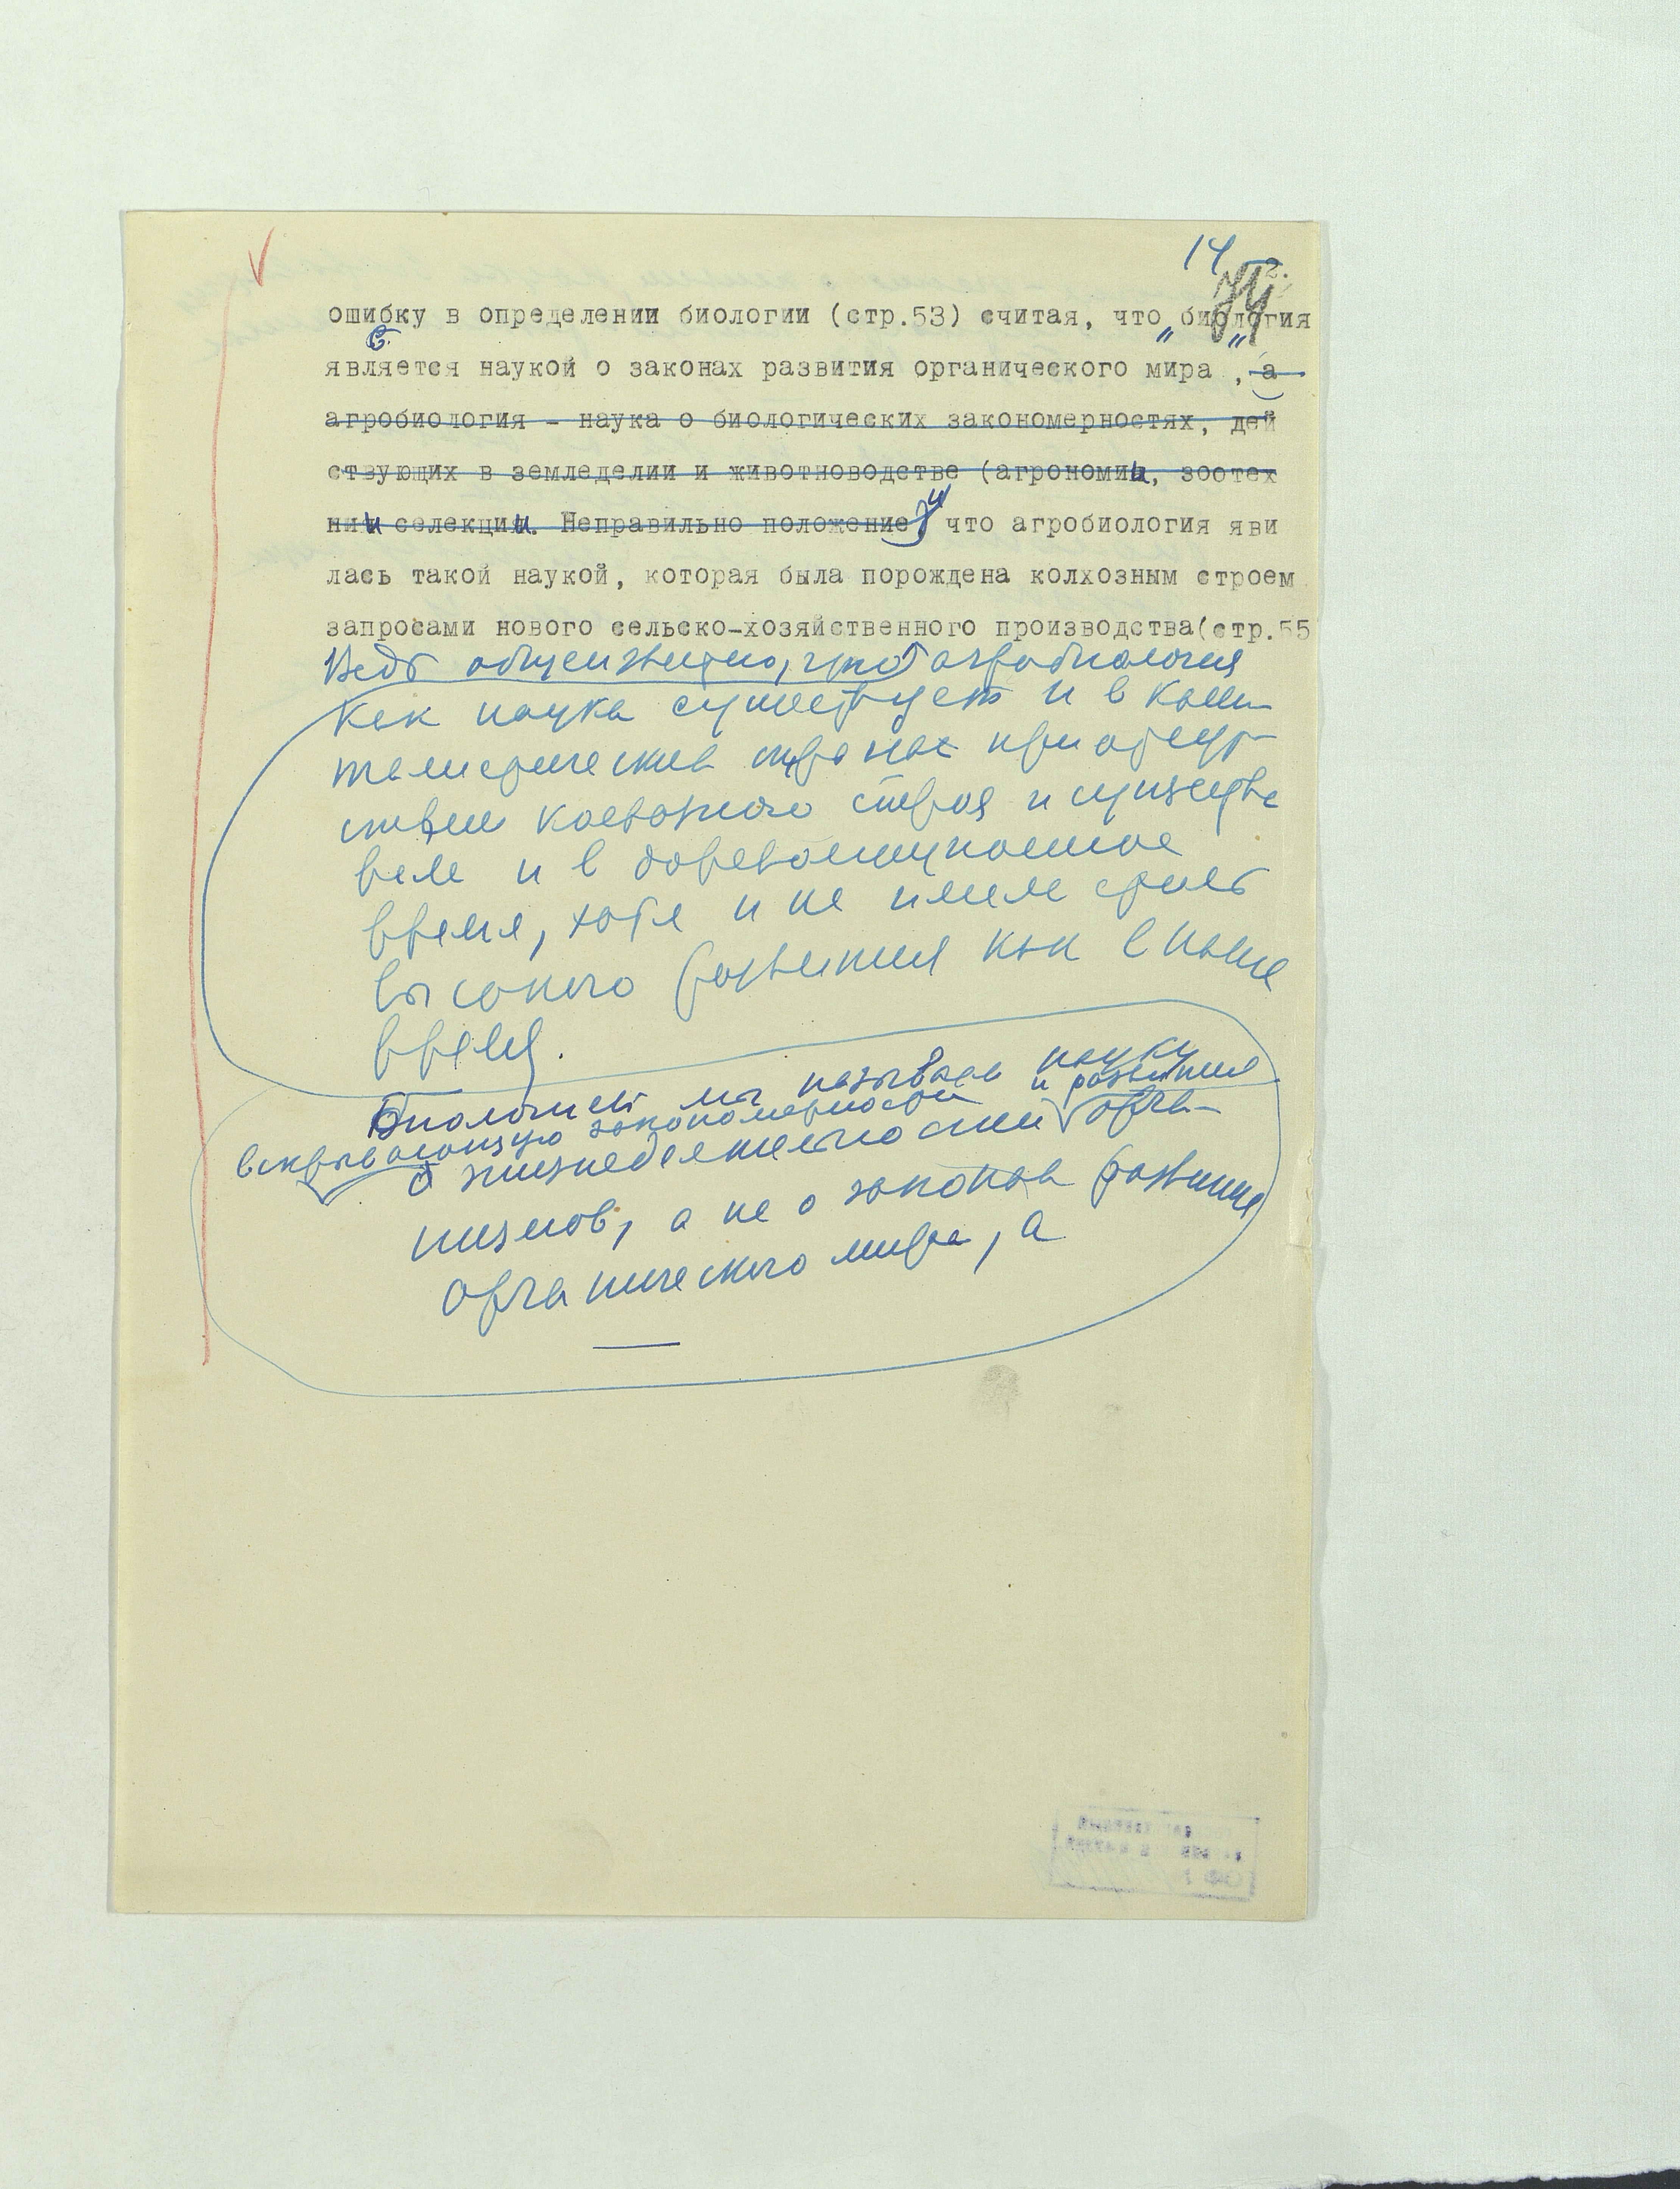 14
ошибку в определении биологии (стр.53) считая, что „биология
является наукой о законах развития органического мира", а
агробиология - наука о биологических закономерностях, дей
ствующих в земледелии и животноводстве (агрономии, зоотех
нии селекции. Неправильно положение, и что агробиология яви
лась такой наукой, которая была порождена колхозным строем
запросами нового сельско-хозяйственного производства(стр.55
Ведь общеизвестно, что агробиология
как наука существует и в капи-
талистических странах при отсут-
ствии колхозного строя и существо
вала и в дореволюционное
время, хотя и не имела столь
высокого развития как в наше
время.
Биологией мы называем науку
вскрывающую закономерности и развития
о жизнедеятельности орга-
низмов, а не о законах развития
органического мира, а